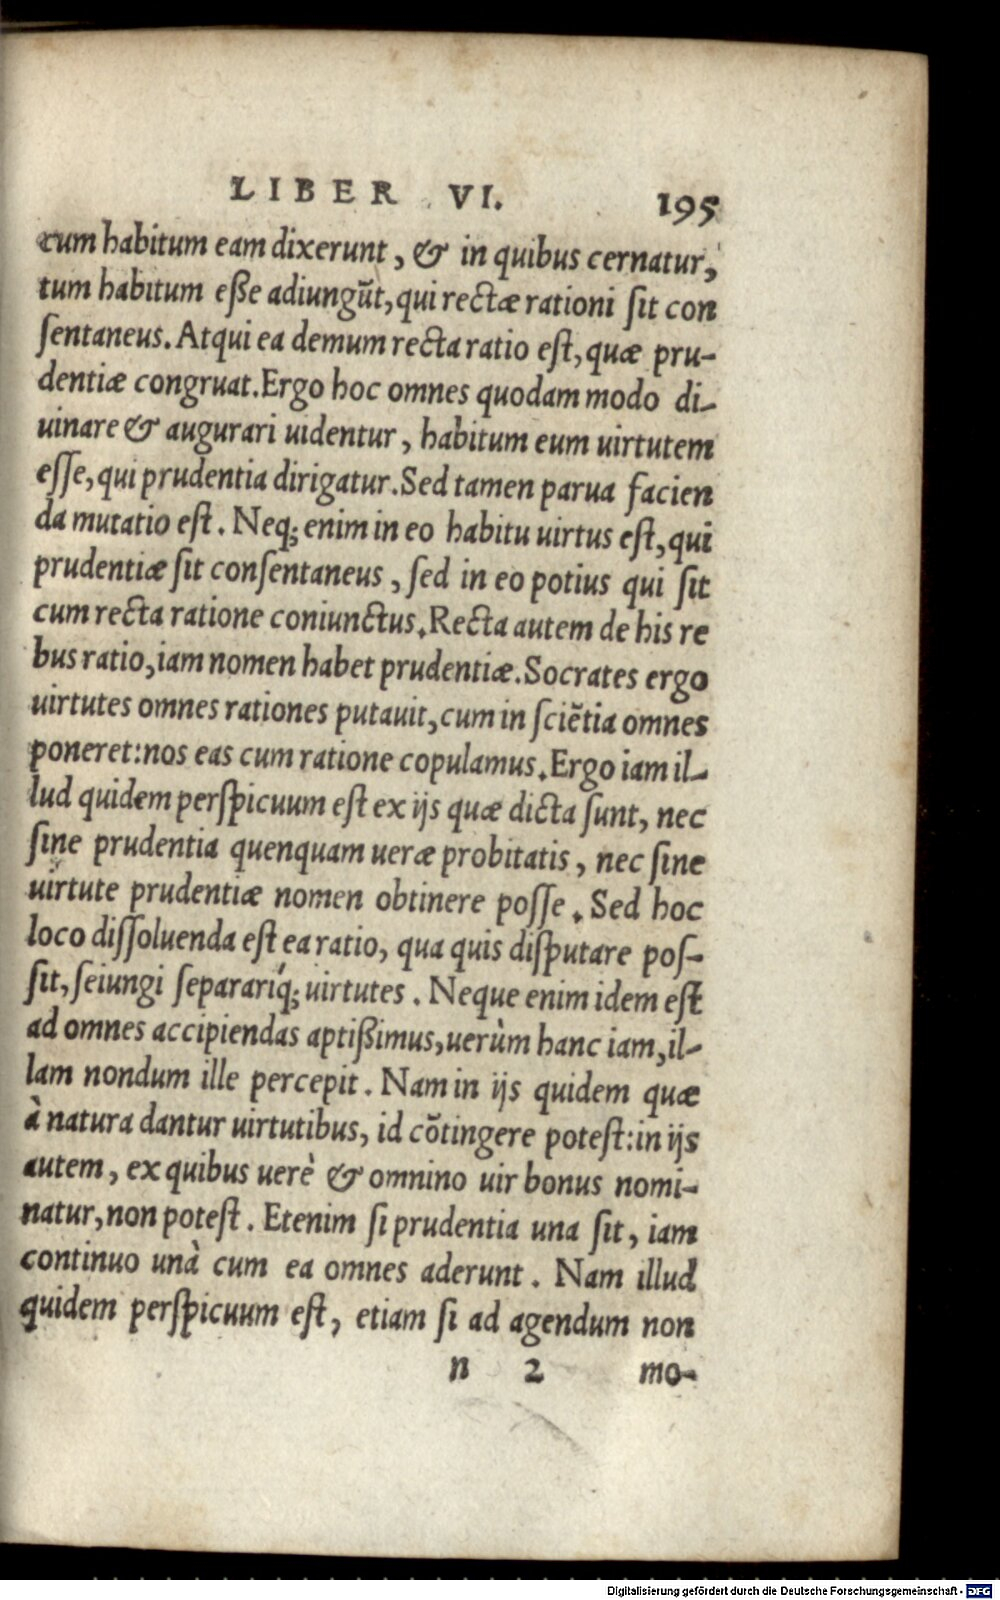 LIBER VI. 195
cum habitum eam dixerunt, & in quibus cernatur,
tum habitum eße adiungūt, qui rectæ rationi ſit con
ſentaneus. Atqui ea demum recta ratio eſt, quæ pru-
dentiæ congruat. Ergo hoc omnes quodam modo di-
uinare & augurari uidentur, habitum eum uirtutem
eſſe, qui prudentia dirigatur. Sed tamen parua facien
da mutatio eſt. Neq; enim in eo habitu uirtus eſt, qui
prudentiæ ſit conſentaneus, ſed in eo potius qui ſit
cum recta ratione coniunctus. Recta autem de his re
bus ratio, iam nomen habet prudentiæ. Socrates ergo
uirtutes omnes rationes putauit, cum in ſciētia omnes
poneret: nos eas cum ratione copulamus. Ergo iam il-
lud quidem perſpicuum eſt ex ijs quæ dicta ſunt, nec
ſine prudentia quenquam ueræ probitatis, nec ſine
uirtute prudentiæ nomen obtinere poſſe. Sed hoc
loco diſſoluenda eſt ea ratio, qua quis diſputare poſ-
ſit, ſeiungi ſeparariq́; uirtutes. Neque enim idem eſt
ad omnes accipiendas aptißimus, uerùm hanc iam, il-
lam nondum ille percepit. Nam in ijs quidem quæ
à natura dantur uirtutibus, id cōtingere poteſt: in ijs
autem, ex quibus uerè & omnino uir bonus nomi-
natur, non poteſt. Etenim ſi prudentia una ſit, iam
continuo unà cum ea omnes aderunt. Nam illud
quidem perſpicuum eſt, etiam ſi ad agendum non
n 2 mo-
Digitalisierung gefördert durch die Deutsche Forschungsgemeinschaft - DFG